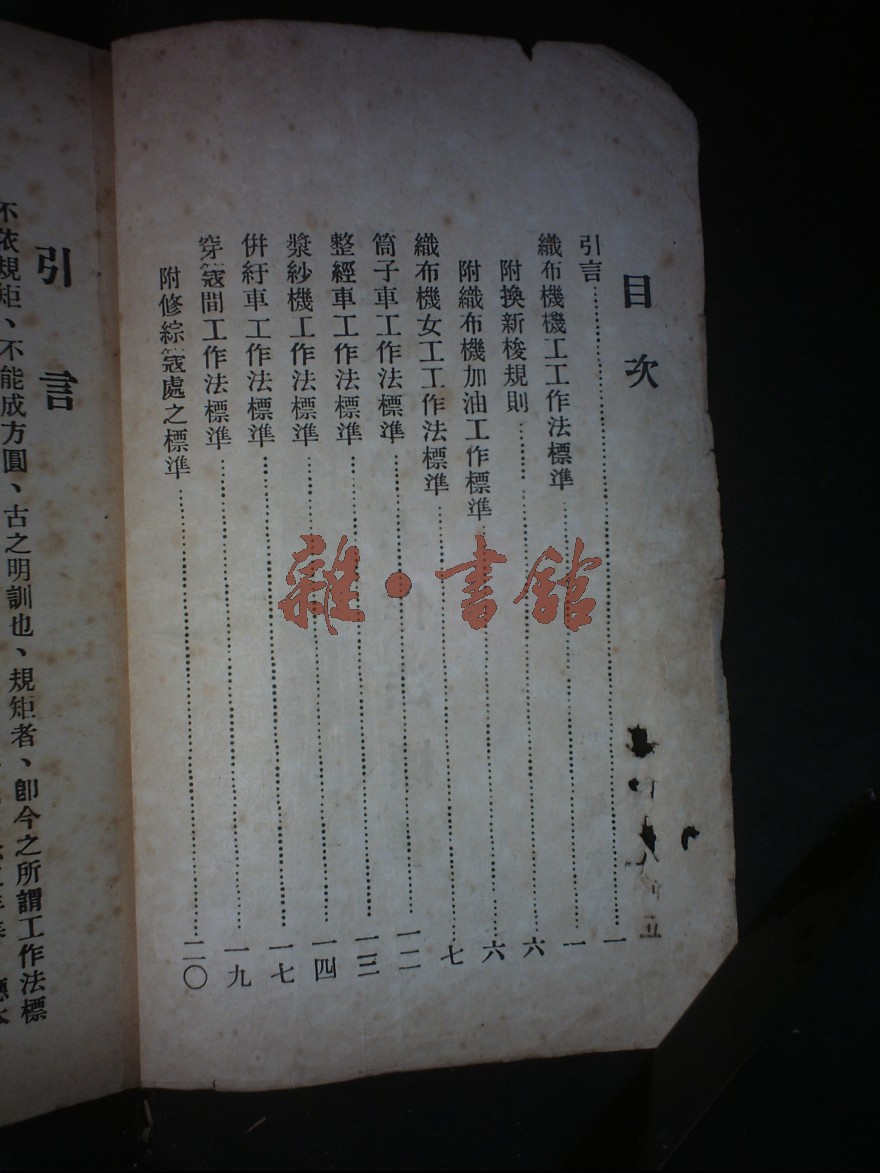 目次
引言…一
織布機機工工作法標準…一
附換新梭規則…六
附織布機加油工作標準…六
織布機女工工作法標準…七
筒子車工作法標準…一二
整經車工作法標準…一三
漿紗機工作法標準…一四
併紆車工作法標準…一七
穿筬間工作法標準…一九
附修綜筬處之標準…二〇
雜·書館
引言
不依規矩、不能成方圓、古之明訓也、規矩者、卽今之所謂工作法標